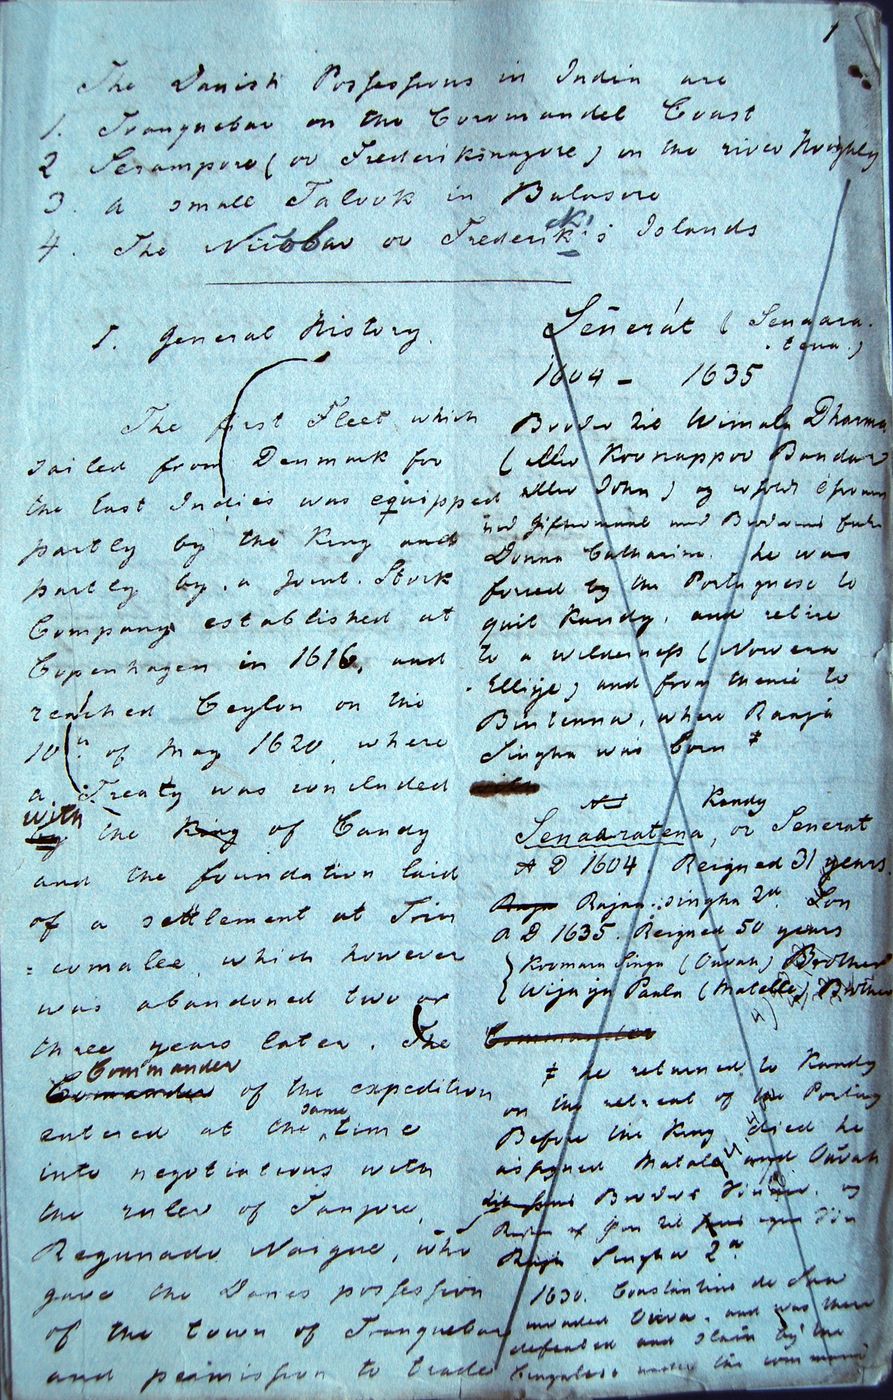 1
The Danish Possessions in India are
1. Tranquebar on the Coromandel Coast
2 Serampore (or Frederiksnagore) on the river Hooghly
3. a small Talook in Balasore
4. The Nicobar or Frederik's Islands
I. General History.
The first Fleet which
sailed from Denmark for
the East Indies was equipped
partly by the King and
partly by a Joint Stock
Company established at
Copenhagen in 1616, and
reached Ceylon on the
10th of May 1620, where
a Treaty was concluded
with
by the King of Candy
and the foundation laid
of a settlement at Trin
=comalee, which however
was abandoned two or
three years later. The
Commander
Commander of the expedition
entered at the same time
into negotiations with
the ruler of Tanjore,
Regunado Naigue, who
gave the Danes possession
of the town of Tranquebar
and permission to trade
Senerát (Senaara.
.tena.)
1604 - 1635
Broder til Wimala Dharma
(eller Koonappoo Bandar
eller John) og
med Broderens
Donna Catharina. he was
forced by the Portuguese to
quit Kandy, and retire
to a wilderness (Nowera
Ellije) and from thence to
Bintenna, where Raaja
Singha was born ‡
Kandy
Senaaratena, or Senerat
A D 1604. Reigned 31 years.
Raja Rajasingha 2d. Son
A D 1635. Reigned 50 years
Koomara Singa (Oùvah) Brother
Wijaya Paala (Matelle) Brother
Commander
‡ he returned to Kandy
on the retreat of the Portug
Before the King died he
assigned Matale and Oùvah
Broders
Raja Singha 2d
1630. Constantine de Saa
invaded Oùva, and was there
defeated and slain by the
Cingalese under the command